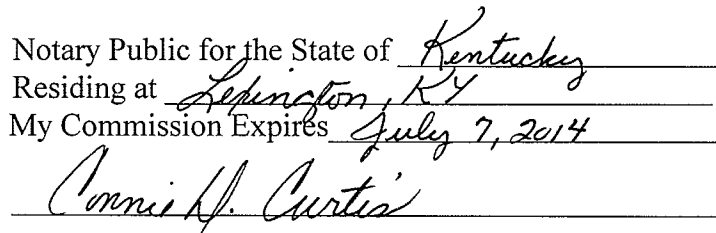 Notary Public for the State of Kentucky
Residing at Lexington, KY
My Commission Expires July 7, 2014
Connie D. Curtis